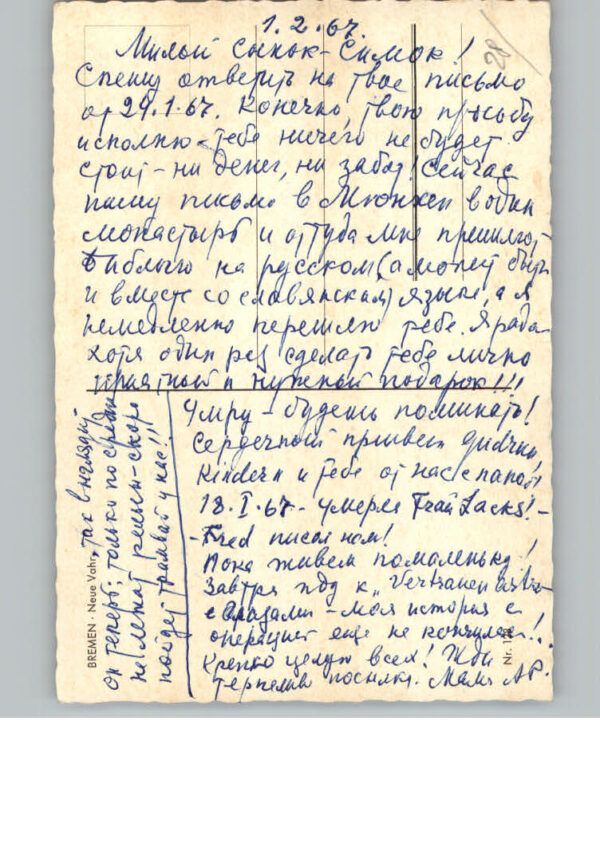 28
1.2.67.
Милый Сынок-Симок!
Спешу ответить на твое письмо
от 29.1.67. Конечно, твою просьбу
исполню - тебе ничего не будет
стоит - ни денег, ни забот! Сейчас
пишу письмо в Мюнхен в один
монастырь и оттуда мне пришлют
библию на русском (а может быть
и вместе со славянским) языке, а я
немедленно перешлю тебе. Я рада
хотя один раз сделать тебе лично
приятный и нужный подарок!!!
Умру - будешь поминать!
Сердечный привет
Kindern и тебе от нас с папой!
18.I.67 - умерла Frau Lacks! -
- Fred писал нам!
Пока живем помаленьку!
Завтра иду к "
с глазами - моя история с
операцией еще не кончилась!..
Крепко целую всех! Жди
терпелив посылки. Мама АР.
BREMEN · Neue Vahr, так выглядит
он теперь; только посредине
лежат рельсы - скоро
пойдет трамвай у нас!!
Nr. 1